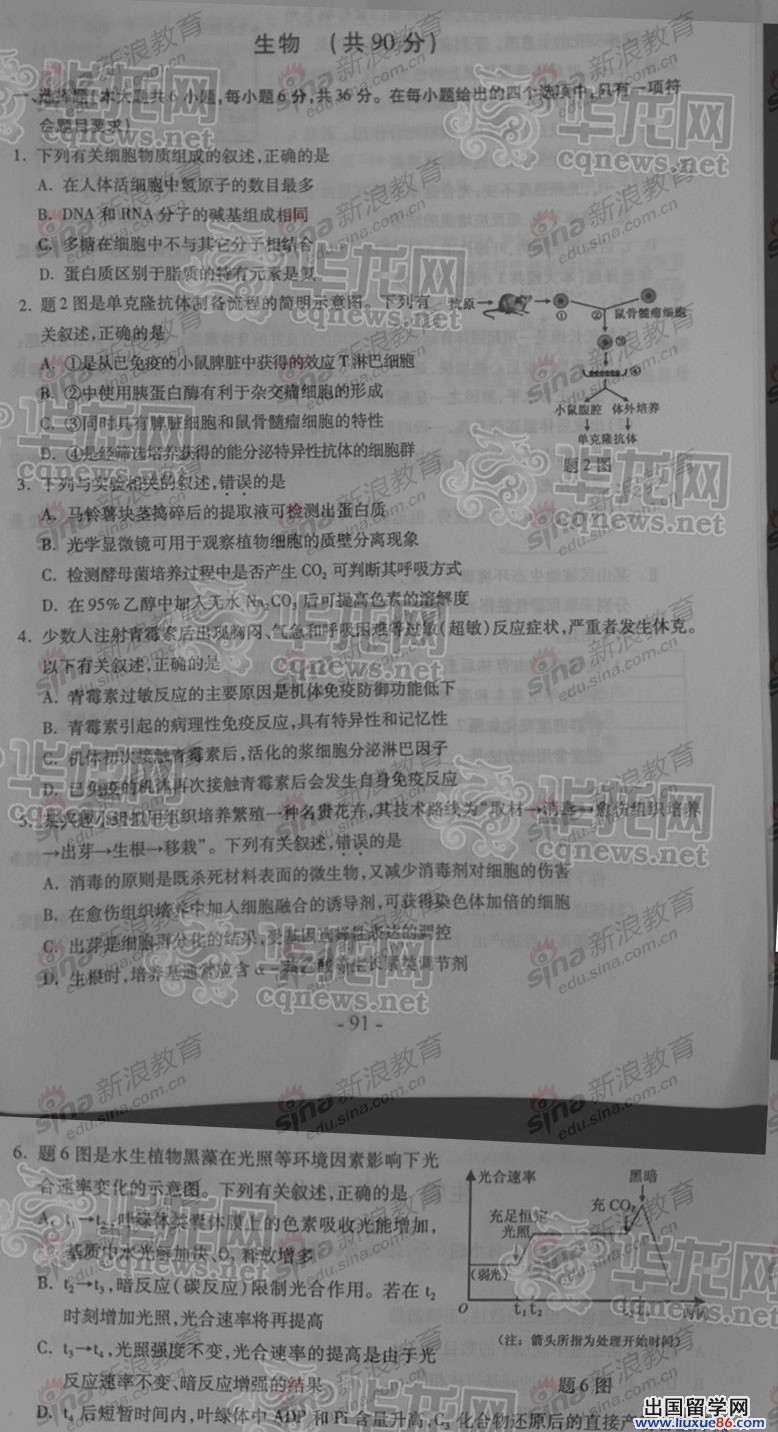 生物 (共90分)
一、选择题(本大题共6小题,每小题6分,共36分。在每小题给出的四个选项中,只有一项符
合题目要求)
1. 下列有关细胞物质组成的叙述,正确的是
A. 在人体活细胞中氢原子的数目最多
B. DNA和RNA分子的碱基组成相同
C. 多糖在细胞中不与其它分子相结合
D. 蛋白质区别于脂质的特有元素是氮
2. 题2图是单克隆抗体制备流程的简明示意图。下列有
关叙述,正确的是
A. ①是从已免疫的小鼠脾脏中获得的效应T淋巴细胞
B. ②中使用胰蛋白酶有利于杂交瘤细胞的形成
C. ③同时具有脾脏细胞和鼠骨髓瘤细胞的特性
D. ④是经筛选培养获得的能分泌特异性抗体的细胞群
抗原
① ② 鼠骨髓瘤细胞
③
④
小鼠腹腔 体外培养
单克隆抗体
题2图
3. 下列与实验相关的叙述,错误的是
A. 马铃薯块茎捣碎后的提取液可检测出蛋白质
B. 光学显微镜可用于观察植物细胞的质壁分离现象
C. 检测酵母菌培养过程中是否产生CO₂可判断其呼吸方式
D. 在95%乙醇中加入无水Na₂CO₃后可提高色素的溶解度
4. 少数人注射青霉素后出现胸闷、气急和呼吸困难等过敏(超敏)反应症状,严重者发生休克。
以下有关叙述,正确的是
A. 青霉素过敏反应的主要原因是机体免疫防御功能低下
B. 青霉素引起的病理性免疫反应,具有特异性和记忆性
C. 机体初次接触青霉素后,活化的浆细胞分泌淋巴因子
D. 已免疫的机体再次接触青霉素后会发生自身免疫反应
5. 某兴趣小组拟用组织培养繁殖一种名贵花卉,其技术路线为“取材→消毒→愈伤组织培养
→出芽→生根→移栽”。下列有关叙述,错误的是
A. 消毒的原则是既杀死材料表面的微生物,又减少消毒剂对细胞的伤害
B. 在愈伤组织培养中加入细胞融合的诱导剂,可获得染色体加倍的细胞
C. 出芽是细胞再分化的结果,受基因选择性表达的调控
D. 生根时,培养基通常应含α-萘乙酸等生长素类调节剂
- 91 -
6. 题6图是水生植物黑藻在光照等环境因素影响下光
合速率变化的示意图。下列有关叙述,正确的是
A. t₁→t₂,叶绿体类囊体膜上的色素吸收光能增加,
基质中水光解加快、O₂释放增多
B. t₂→t₃,暗反应(碳反应)限制光合作用。若在t₂
时刻增加光照,光合速率将再提高
C. t₃→t₄,光照强度不变,光合速率的提高是由于光
反应速率不变、暗反应增强的结果
D. t₄后短暂时间内,叶绿体中ADP和Pi含量升高,C₃化合物还原后的直接产
光合速率 黑暗
充足恒定 充CO₂
光照
(弱光)
O t₁ t₂
(注:箭头所指为处理开始时间)
题6图
新浪教育
sina
edu.sina.com.cn
华龙网
cqnews.net
出国留学网
www.liuxue86.com